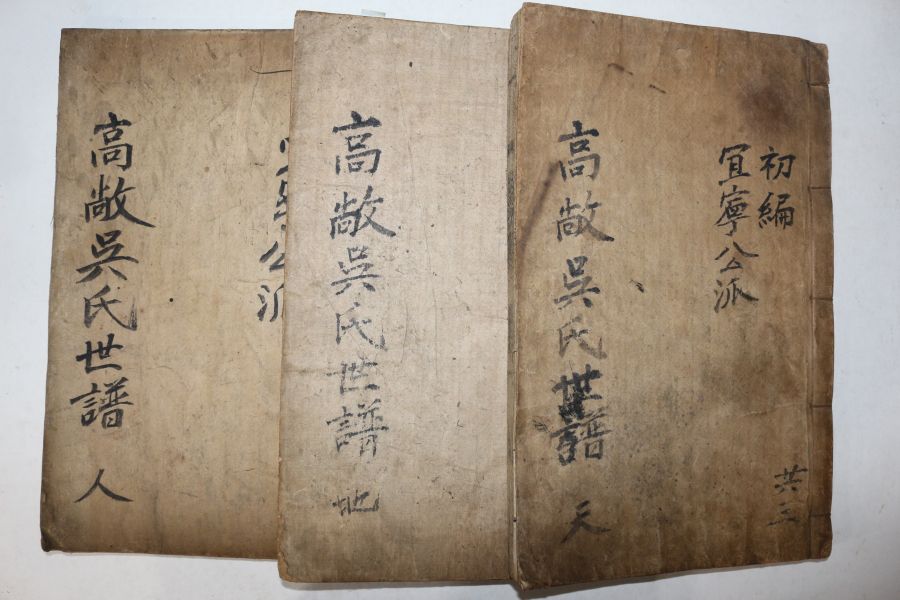 初編
宜寧公派
共三
高敞吳氏世譜 天
高敞吳氏世譜 地
公派
高敞吳氏世譜 人